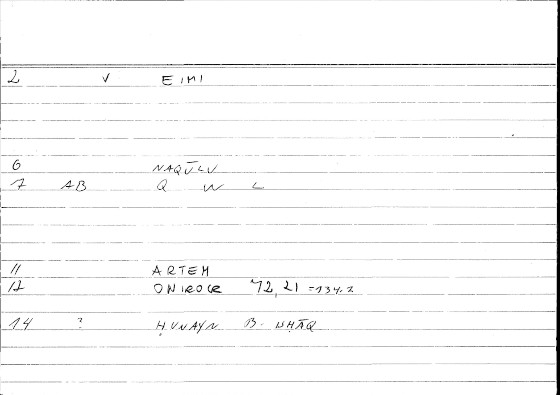 2 v EIMI
6 NAQŪLU
7 AB Q W L
11 ARTEM
12 ONIROCR 72,21 =134.2
14 ? ḤUNAYN B. ISḤĀQ